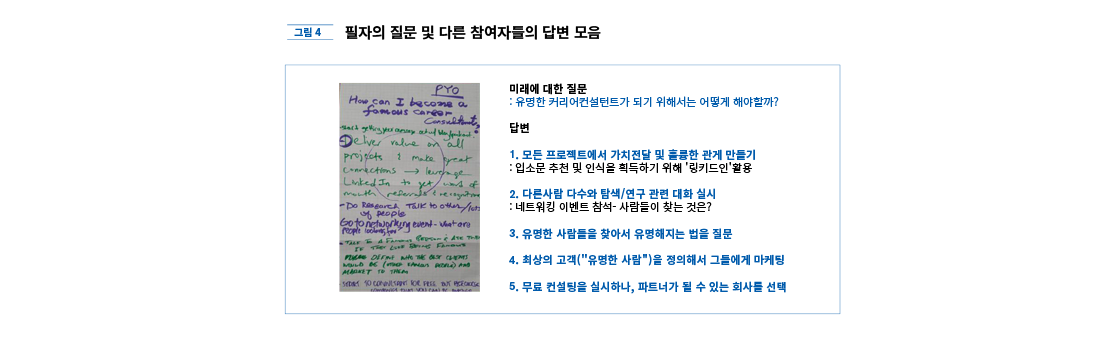 그림 4
필자의 질문 및 다른 참여자들의 답변 모음
PYO
How can I become a
famous career
Consultant?
Deliver value on all
projects & make great
connections → leverage
LinkedIn to get word of
mouth referrals & recognition
- Do Research Talk to others/lots
of people
Go to networking event - what are
people looking for
- Talk to a famous person & ask them
if they like being famous
Please define who the best clients
would be (other famous people) and
market to them
미래에 대한 질문
: 유명한 커리어컨설턴트가 되기 위해서는 어떻게 해야할까?
답변
1. 모든 프로젝트에서 가치전달 및 훌륭한 관계 만들기
: 입소문 추천 및 인식을 획득하기 위해 '링키드인'활용
2. 다른사람 다수와 탐색/연구 관련 대화 실시
: 네트워킹 이벤트 참석- 사람들이 찾는 것은?
3. 유명한 사람들을 찾아서 유명해지는 법을 질문
4. 최상의 고객("유명한 사람")을 정의해서 그들에게 마케팅
5. 무료 컨설팅을 실시하나, 파트너가 될 수 있는 회사를 선택